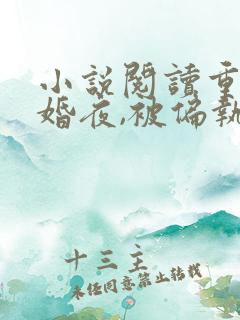 小説閱讀重
婚夜,被偏執
十三主
未经同意禁止转载